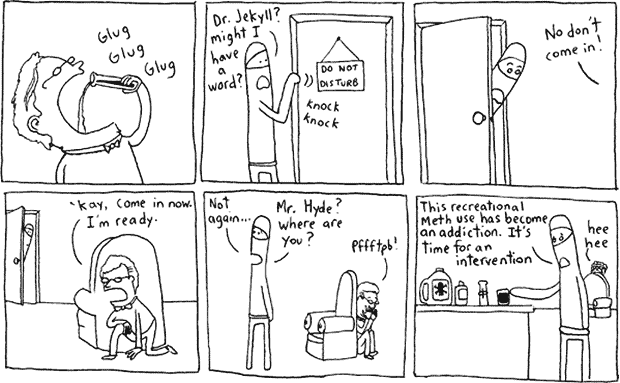 Glug
Glug
Glug
Dr. Jekyll?
might I
have
a
word?
DO NOT
DISTURB
knock
knock
No don't
come in!
'kay, come in now.
I'm ready.
Not
again...
Mr. Hyde?
where are
you?
Pffftpb!
This recreational
Meth use has become
an addiction. It's
time for an
intervention
hee
hee